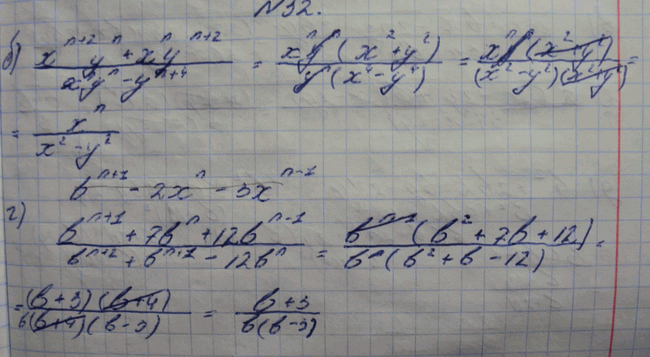 N32.
б) (x^{n+2} y^n + x^n y^{n+2}) / (x^4 y^n - y^{n+4}) = (x^n y^n (x^2 + y^2)) / (y^n (x^4 - y^4)) = (x^n (x^2 + y^2)) / ((x^2 - y^2)(x^2 + y^2)) =
= x^n / (x^2 - y^2)
b^{n+1} - 2x^n - 3x^{n-1}
г) (b^{n+1} + 7b^n + 12b^{n-1}) / (b^{n+2} + b^{n+1} - 12b^n) = (b^{n-1} (b^2 + 7b + 12)) / (b^n (b^2 + b - 12)) =
= ((b+3)(b+4)) / (b(b+4)(b-3)) = (b+3) / (b(b-3))